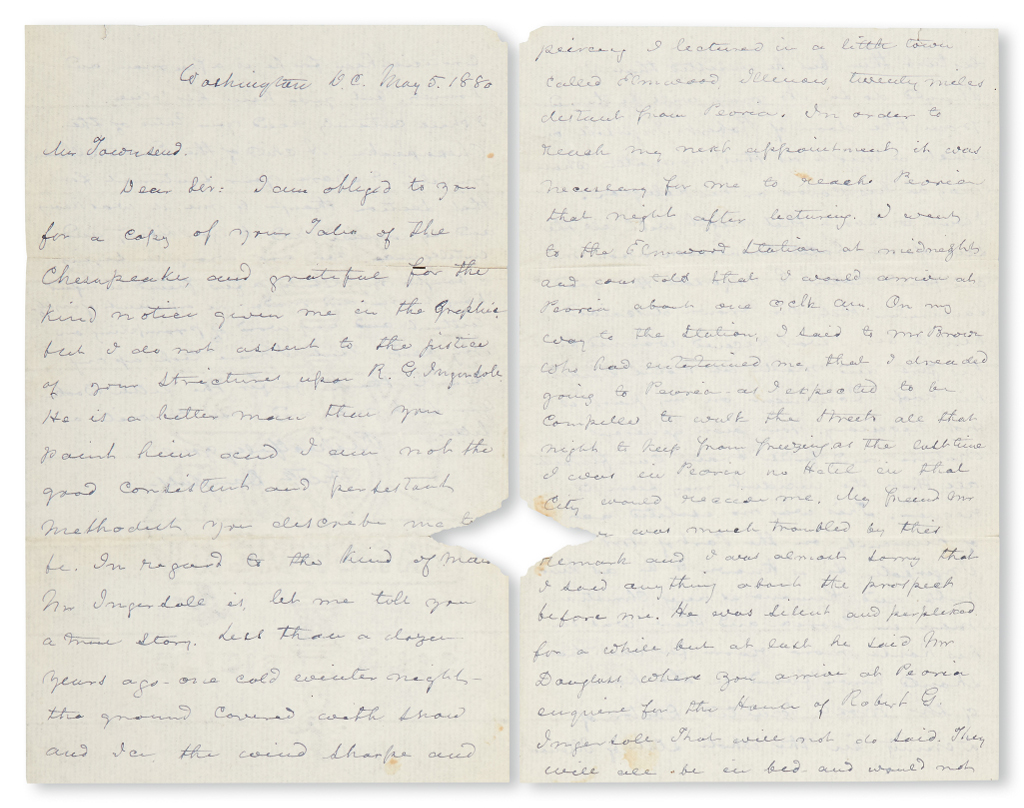 Washington D.C. May 5. 1880
Mr Townsend.
Dear Sir: I am obliged to you
for a copy of your Tales of the
Chesapeake, and grateful for the
kind notice given me in the Graphic
but I do not assent to the justice
of your strictures upon R. G. Ingersoll.
He is a better man than you
paint him and I am not the
good consistent and persistant
Methodist you describe me to
be. In regard to the kind of man
Mr Ingersoll is, let me tell you
a true story. Less than a dozen
years ago - one cold winter night -
the ground covered with snow
and ice the wind sharpe and
peircing I lectured in a little town
called Elmwood, Illinois, twenty miles
distant from Peoria. In order to
reach my next appointment it was
necessary for me to reach Peoria
that night after lecturing. I went
to the Elmwood Station at midnight,
and was told that I would arrive at
Peoria about one oclk am. On my
way to the Station, I said to Mr Brown
who had entertained me, that I dreaded
going to Peoria as I expected to be
compelled to walk the streets all that
night to keep from freezing as the last time
I was in Peoria no Hotel in that
City would receive me. My friend Mr
was much troubled by this
remark and I was almost sorry that
I said anything about the prospect
before me. He was silent and perplexed
for a while, but at last he said Mr
Douglass, when you arrive at Peoria
enquire for the House of Robert G.
Ingersoll. That will not do said. They
will all be in bed and would not